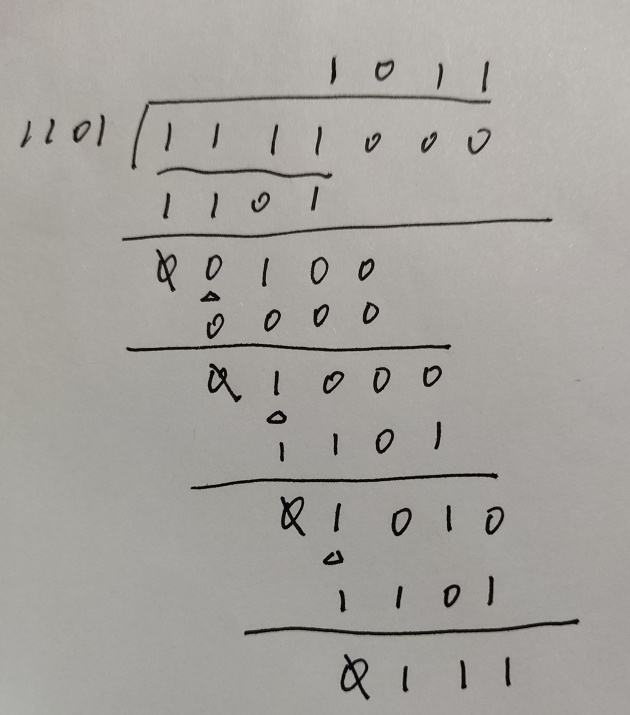 1 0 1 1
1101 1 1 1 1 0 0 0
1 1 0 1
0 0 1 0 0
0 0 0 0
0 1 0 0 0
1 1 0 1
0 1 0 1 0
1 1 0 1
0 1 1 1